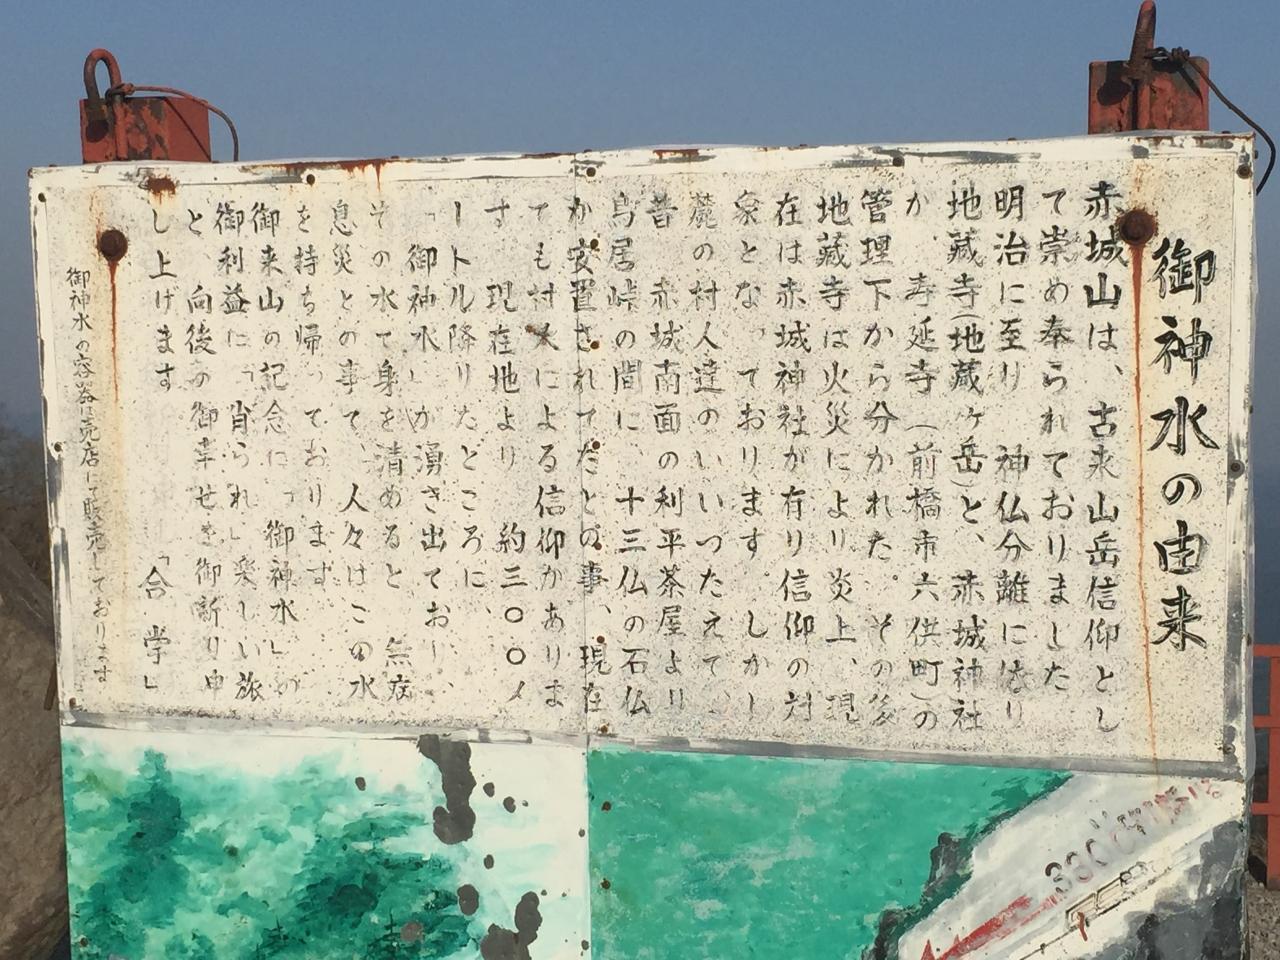 御神水の由来
赤城山は、古来山岳信仰とし
て崇め奉られておりました
明治に至り 神仏分離になり
地蔵寺(地蔵ヶ岳)と、赤城神社
が、寿延寺(前橋市六供町)の
管理下から分かれた。その後
地蔵寺は火災により炎上、現
在は赤城神社が有り信仰の対
象となっております。しかし
麓の村人達のいいつたえで、
昔 赤城南面の利平茶屋より
鳥居峠の間に、十三仏の石仏
が安置されてたとの事、現在
でも村人による信仰がありま
す。現在地より 約三〇〇メ
ートル降りたところに、
「御神水」が湧き出ており、
その水で身を清めると 無病
息災との事で、人々はこの水
を持ち帰っております。
御来山の記念に、「御神水」が
御利益に「肖られ」楽しい旅
と、向後の御幸せを御祈り申
し上げます 「合 掌」
御神水の容器は売店にて販売しております